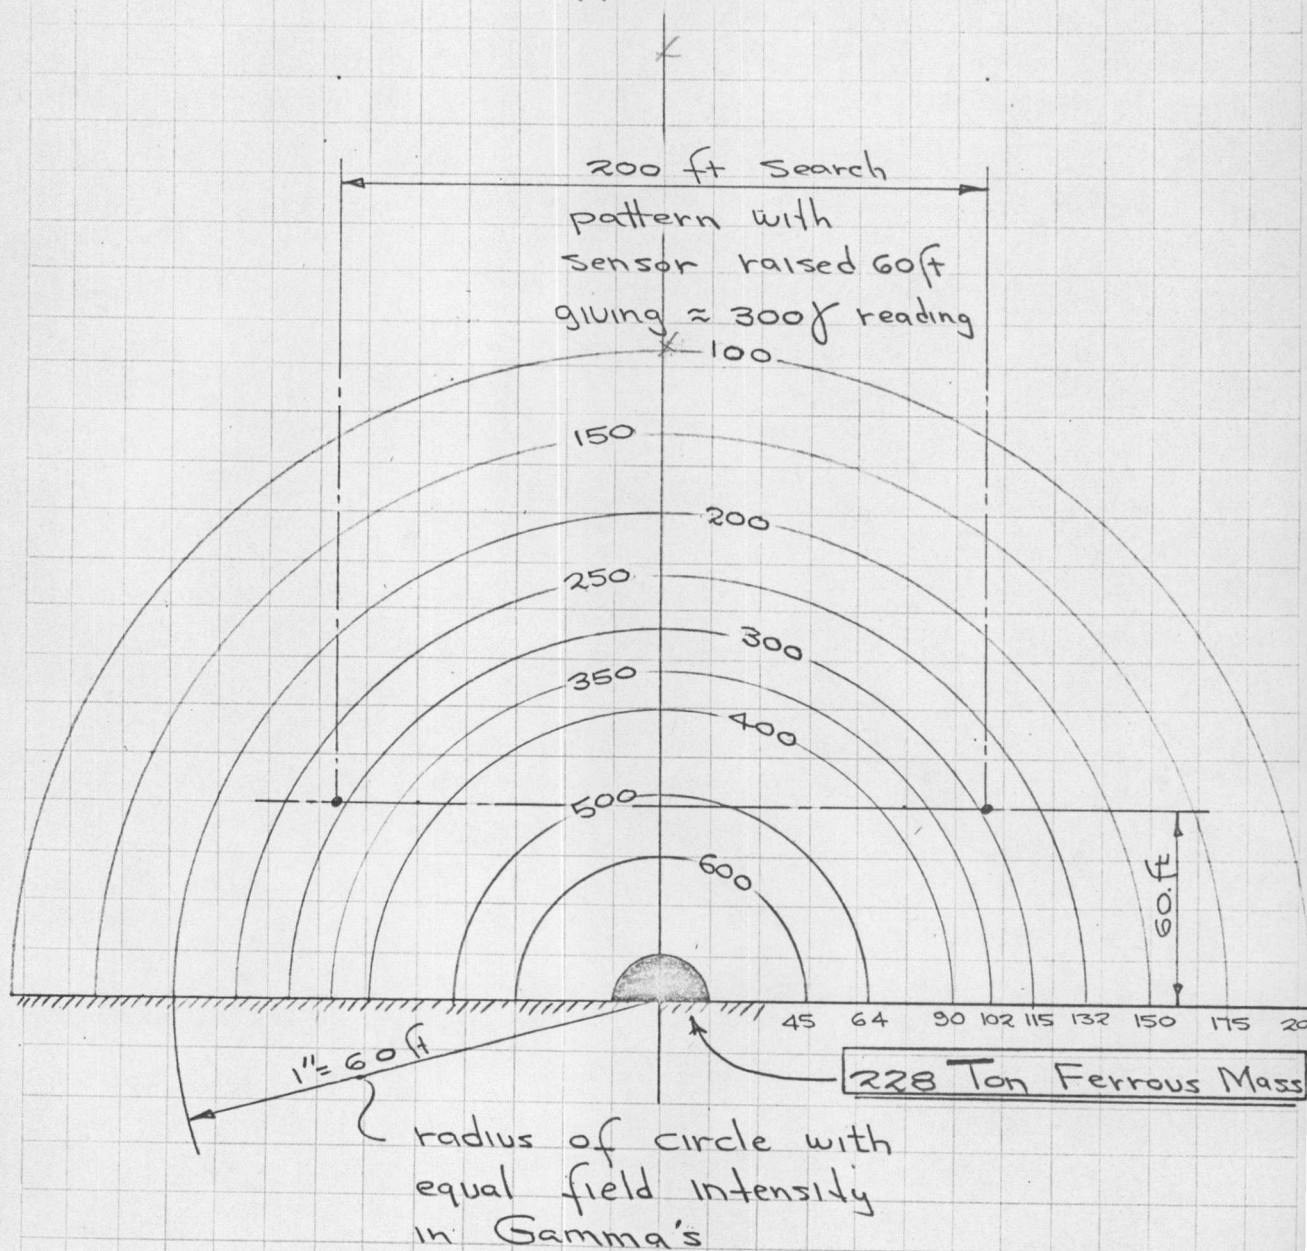 200 ft Search
pattern with
sensor raised 60ft
giving ≈ 300γ reading
100
150
200
250
300
350
400
500
600
60.ft
45 64 90 102 115 132 150 175
1"= 60 ft
228 Ton Ferrous Mass
radius of circle with
equal field intensity
in Gamma's